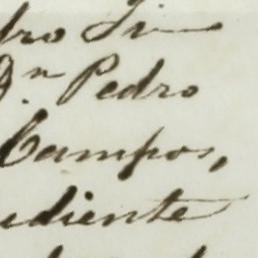 dro Si
D.n Pedro
Campos,
udiente